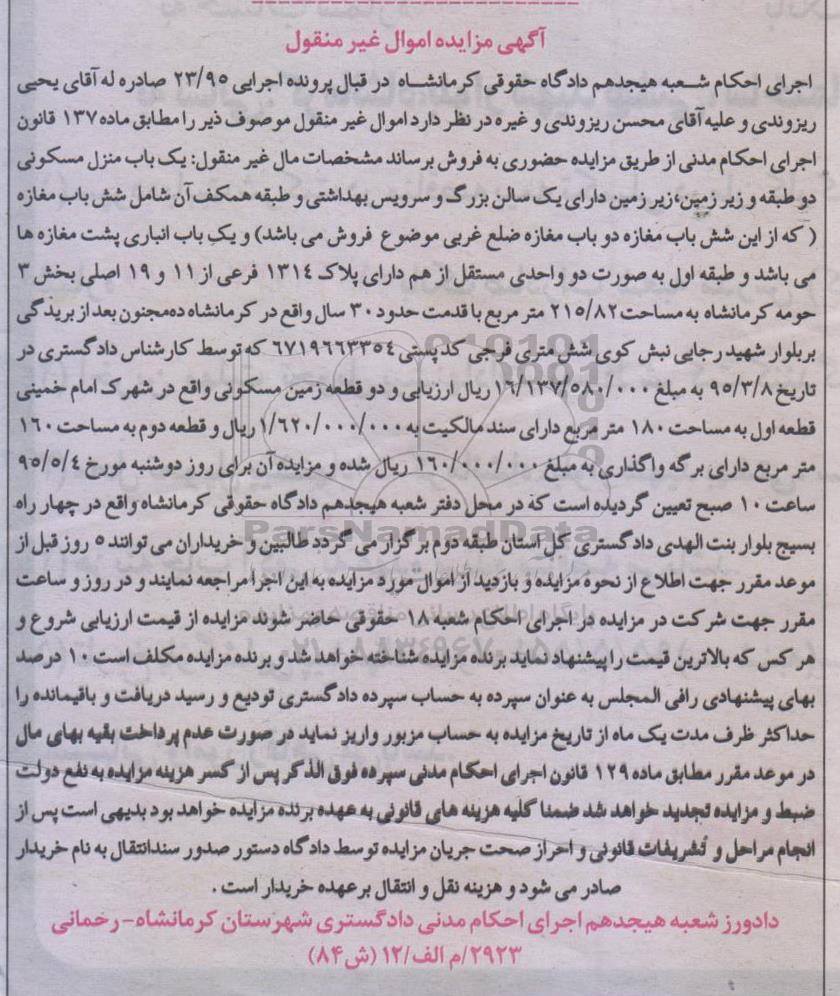 آگهی مزایده اموال غیر منقول
اجرای احکام شعبه هیجدهم دادگاه حقوقی کرمانشاه در قبال پرونده اجرایی ۲۳/۹۵ صادره له آقای یحیی
ریزوندی و علیه آقای محسن ریزوندی و غیره در نظر دارد اموال غیر منقول موصوف ذیر را مطابق ماده ۱۳۷ قانون
اجرای احکام مدنی از طریق مزایده حضوری به فروش برساند مشخصات مال غیر منقول: یک باب منزل مسکونی
دو طبقه و زیر زمین،زیر زمین دارای یک سالن بزرگ و سرویس بهداشتی و طبقه همکف آن شامل شش باب مغازه
( که از این شش باب مغازه دو باب مغازه ضلع غربی موضوع فروش می باشد) و یک باب انباری پشت مغازه ها
می باشد و طبقه اول به صورت دو واحدی مستقل از هم دارای پلاک ۱۳۱۴ فرعی از ۱۱ و ۱۹ اصلی بخش ۳
حومه کرمانشاه به مساحت ۲۱۵/۸۲ متر مربع با قدمت حدود ۳۰ سال واقع در کرمانشاه ده‌مجنون بعد از بریدگی
بربلوار شهید رجایی نبش کوی شش متری فرجی کد پستی ۶۷۱۹۶۶۳۳۵۴ که توسط کارشناس دادگستری در
تاریخ ۹۵/۳/۸ به مبلغ ۱۶/۱۳۷/۵۸۰/۰۰۰ ریال ارزیابی و دو قطعه زمین مسکونی واقع در شهرک امام خمینی
قطعه اول به مساحت ۱۸۰ متر مربع دارای سند مالکیت به ۱/۶۲۰/۰۰۰/۰۰۰ ریال و قطعه دوم به مساحت ۱۶۰
متر مربع دارای برگه واگذاری به مبلغ ۱۶۰/۰۰۰/۰۰۰ ریال شده و مزایده آن برای روز دوشنبه مورخ ۹۵/۵/۴
ساعت ۱۰ صبح تعیین گردیده است که در محل دفتر شعبه هیجدهم دادگاه حقوقی کرمانشاه واقع در چهار راه
بسیج بلوار بنت الهدی دادگستری کل استان طبقه دوم برگزار می گردد طالبین و خریداران می توانند ۵ روز قبل از
موعد مقرر جهت اطلاع از نحوه مزایده و بازدید از اموال مورد مزایده به این اجرا مراجعه نمایند و در روز و ساعت
مقرر جهت شرکت در مزایده در اجرای احکام شعبه ۱۸ حقوقی حاضر شوند مزایده از قیمت ارزیابی شروع و
هر کس که بالاترین قیمت را پیشنهاد نماید برنده مزایده شناخته خواهد شد و برنده مزایده مکلف است ۱۰ درصد
بهای پیشنهادی رافی المجلس به عنوان سپرده به حساب سپرده دادگستری تودیع و رسید دریافت و باقیمانده را
حداکثر ظرف مدت یک ماه از تاریخ مزایده به حساب مزبور واریز نماید در صورت عدم پرداخت بقیه بهای مال
در موعد مقرر مطابق ماده ۱۲۹ قانون اجرای احکام مدنی سپرده فوق الذکر پس از کسر هزینه مزایده به نفع دولت
ضبط و مزایده تجدید خواهد شد ضمنا کلیه هزینه های قانونی به عهده برنده مزایده خواهد بود بدیهی است پس از
انجام مراحل و تشریفات قانونی و احراز صحت جریان مزایده توسط دادگاه دستور صدور سندانتقال به نام خریدار
صادر می شود و هزینه نقل و انتقال برعهده خریدار است .
دادورز شعبه هیجدهم اجرای احکام مدنی دادگستری شهرستان کرمانشاه- رخمانی
۲۹۲۳/م الف/۱۲ (ش۸۴)
ParsNamadData